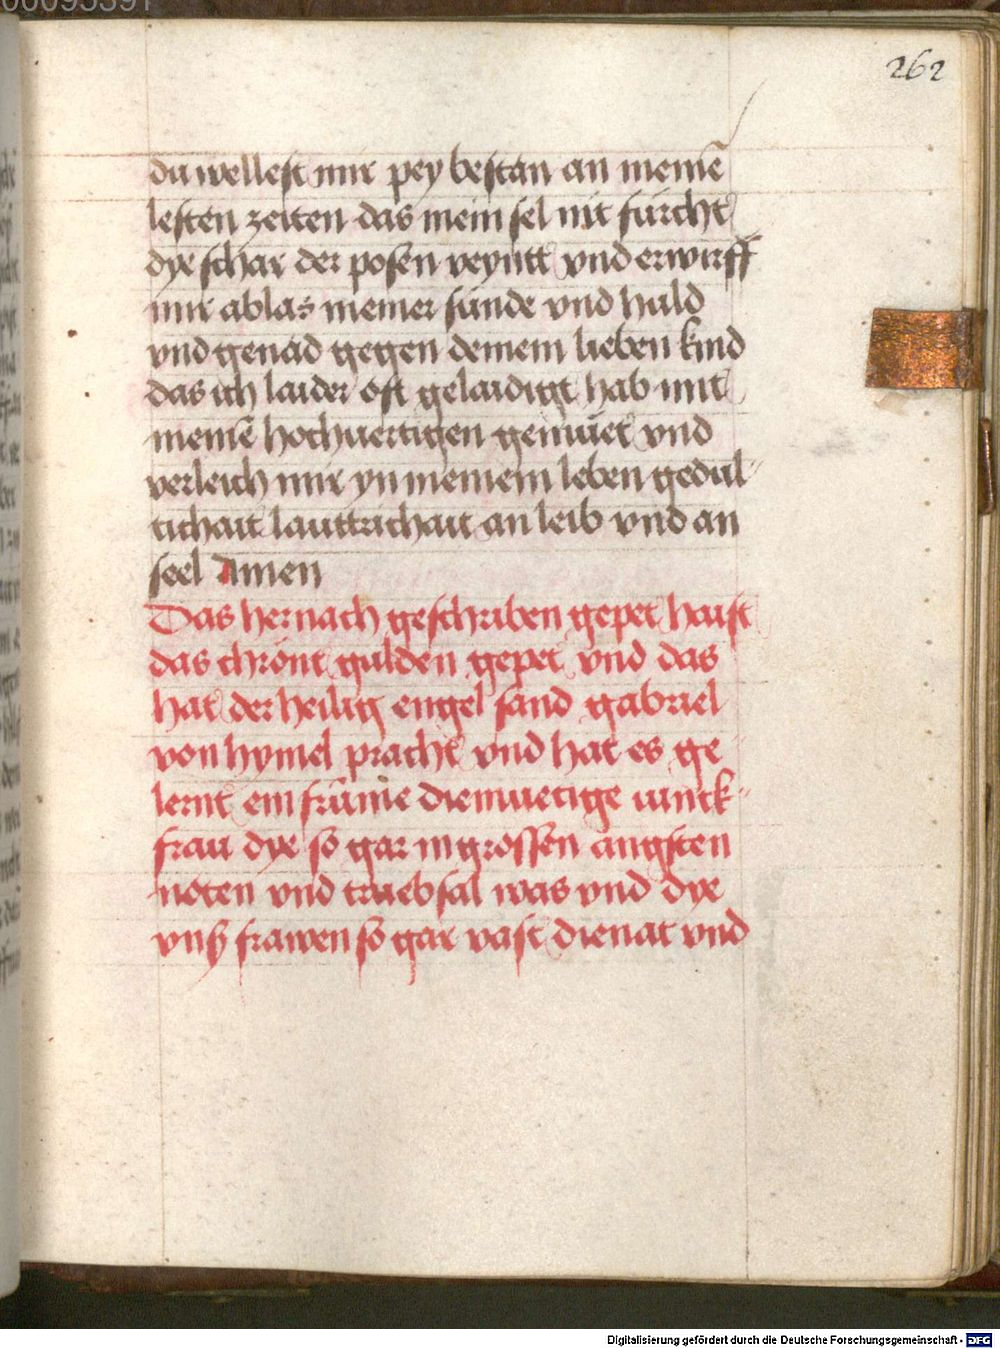 00095391
262
du wellest mir pey bestan an meinē
lesten zeiten das mein sel nit fürcht
dye schar der posen veyntt vnd erwirff
mir ablas meiner sünde vnd huld
vnd genad gegen deinem lieben kind
das ich laider oft gelaidigt hab mit
meinē hochuertigen gemüet vnd
verleich mir yn meinem leben gedul-
tichait lauttrichait an leib vnd an
seel Amen
Das hernach geschriben gepet haist
das chrönt gulden gepet vnd das
hat der heilig engel sand gabriel
von hymel pracht vnd hat es ge
lernt ein frūme diemuetige iunck-
frau dye so gar in grossen angsten
nöten vnd truebsal was vnd dye
vnß frawen so gar vast dienat vnd
Digitalisierung gefördert durch die Deutsche Forschungsgemeinschaft - DFG